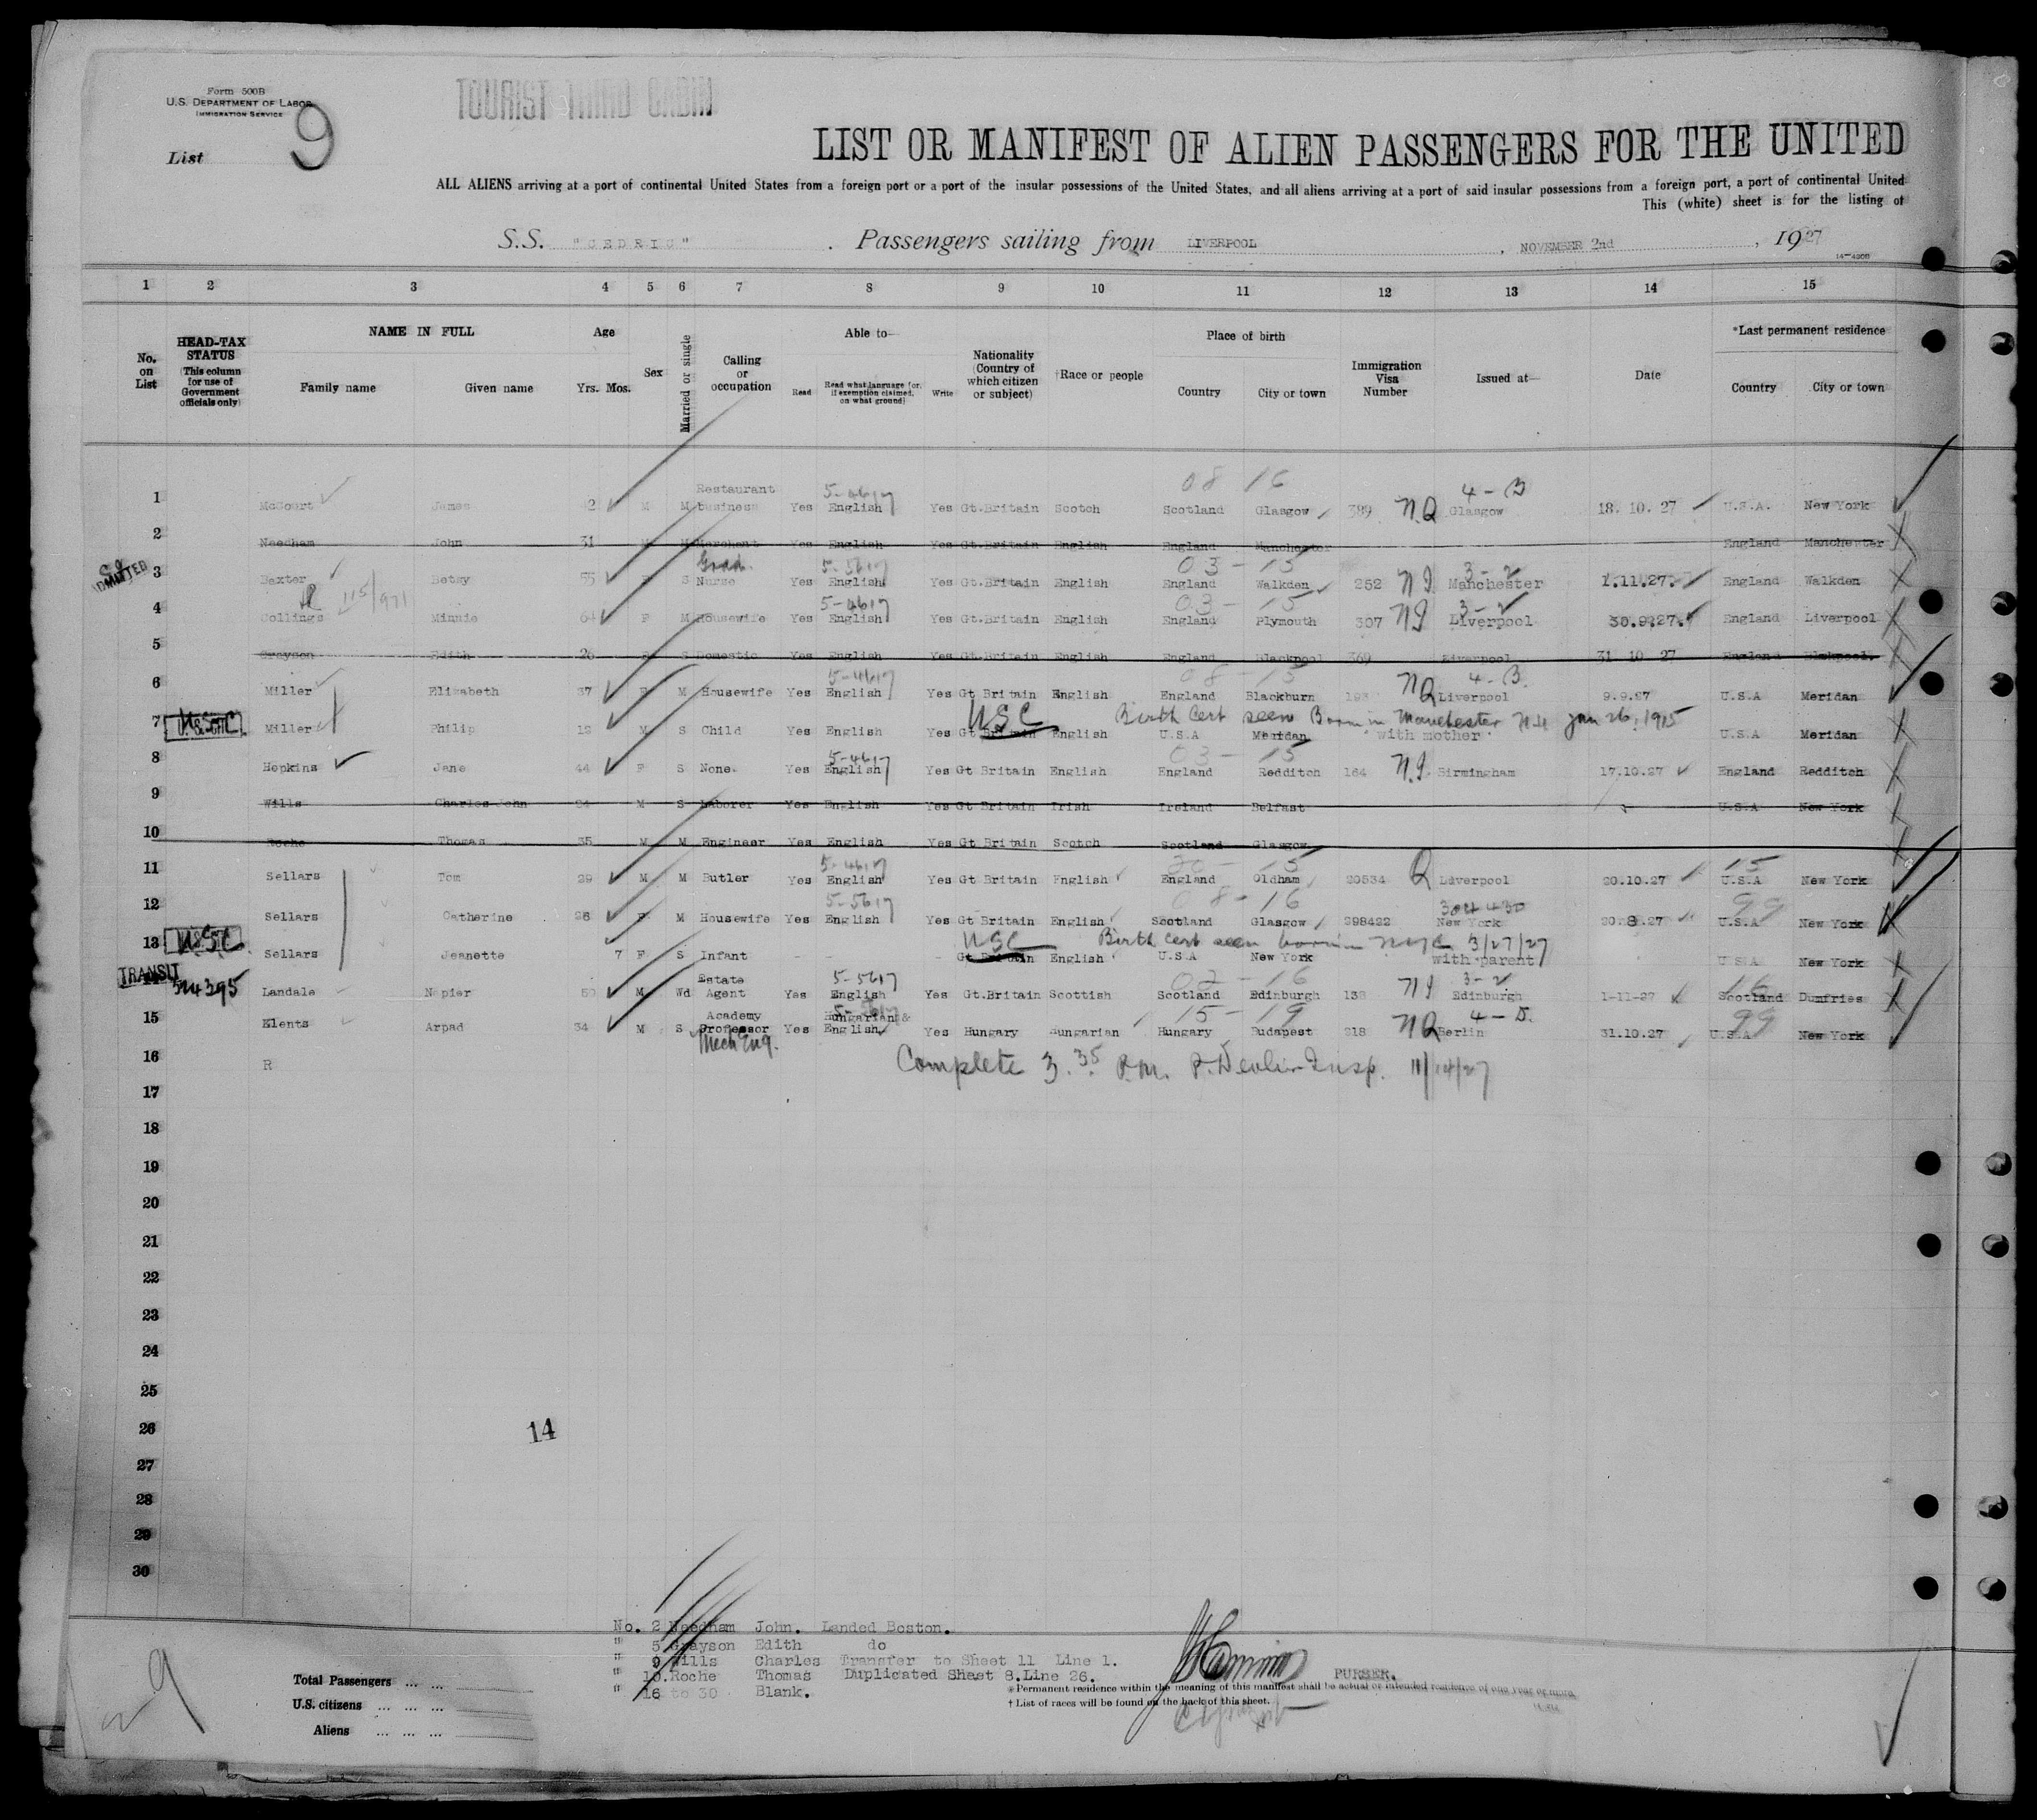 Form 500B
U.S. DEPARTMENT OF LABOR
IMMIGRATION SERVICE
TOURIST THIRD CABIN
List 9
LIST OR MANIFEST OF ALIEN PASSENGERS FOR THE UNITED
ALL ALIENS arriving at a port of continental United States from a foreign port or a port of the insular possessions of the United States, and all aliens arriving at a port of said insular possessions from a foreign port, a port of continental United
This (white) sheet is for the listing of
S.S. "CEDRIC" . Passengers sailing from LIVERPOOL , NOVEMBER 2nd , 1927
1 2 3 4 5 6 7 8 9 10 11 12 13 14 15
No. on List
HEAD-TAX STATUS (This column for use of Government officials only)
NAME IN FULL Family name Given name
Age Yrs. Mos.
Sex
Married or single
Calling or occupation
Able to— Read Read what language (or, if exemption claimed, on what ground) Write
Nationality (Country of which citizen or subject)
†Race or people
Place of birth Country City or town
Immigration Visa Number
Issued at—
Date
*Last permanent residence Country City or town
08 16 4-B
1 McCourt James 42 M M Restaurant business Yes 5-4617 English Yes Gt.Britain Scotch Scotland Glasgow 399 NQ Glasgow 18.10.27 U.S.A. New York
2 Needham John 31 M M Merchant Yes English Yes Gt.Britain English England Manchester England Manchester
ADMITTED
Grad. 5-5617 03-15 3-2
3 Baxter Betsy 55 F S Nurse Yes English Yes Gt.Britain English England Walkden 252 NI Manchester 1.11.27. England Walkden
115/971 5-4617 03-15 3-2
4 Collings Minnie 64 F M Housewife Yes English Yes Gt.Britain English England Plymouth 307 NI Liverpool 30.9.27. England Liverpool
5 Grayson Edith 26 F S Domestic Yes English Yes Gt.Britain English England Blackpool 369 Liverpool 31 10 27 England Blckpool.
5-4617 08-15 4-B.
6 Miller Elizabeth 37 F M Housewife Yes English Yes Gt Britain English England Blackburn NQ Liverpool 9.9.27 U.S.A Meridan
USC Birth Cert seen Born in Manchester N.H. Jan 26, 1915
7 USC Miller Philip 12 M S Child Yes English Yes Gt Britain English U.S.A Meridan with mother U.S.A Meridan
5-4617 03-15
8 Hopkins Jane 44 F S None. Yes English Yes Gt Britain English England Redditch 164 N.I. Birmingham 17.10.27 England Redditch
9 Wills Charles John 24 M S Laborer Yes English Yes Gt Britain Irish Ireland Belfast U.S.A New York
10 Roche Thomas 35 M M Engineer Yes English Yes Gt Britain Scotch Scotland Glasgow
5-4617 15 15
11 Sellars Tom 29 M M Butler Yes English Yes Gt Britain English England Oldham 20534 Q Liverpool 20.10.27 U.S.A New York
5-5617 08-16 99
12 Sellars Catherine 26 F M Housewife Yes English Yes Gt Britain English Scotland Glasgow 298422 New York 20.8.27 U.S.A New York
USC Birth Cert seen born in NYC 3/27/27
13 USC Sellars Jeanette 7 F S Infant - - - Gt Britain English U.S.A New York with parent U.S.A New York
TRANSIT
5-5617 02-16 3-2 16
Landale Napier 50 M Wd Estate Agent Yes English Yes Gt.Britain Scottish Scotland Edinburgh 138 NI Edinburgh 1-11-27 Scotland Dumfries
15-19 99
15 Elents Arpad 34 M S Academy Professor Mech Eng. Yes Hungarian & English Yes Hungary Hungarian Hungary Budapest 218 NQ Berlin 31.10.27 U.S.A New York
16 R Complete 3.35 P.M. P. Devlin Insp. 11/14/27
17
18
19
20
21
22
23
24
25
26 14
27
28
29
30
No. 2 Needham John. Landed Boston.
" 5 Grayson Edith do
" 9 Wills Charles Transfer to Sheet 11 Line 1.
" 10. Roche Thomas Duplicated Sheet 8. Line 26.
" 16 to 30 Blank.
PURSER.
Total Passengers
U.S. citizens
Aliens
* Permanent residence within the meaning of this manifest shall be actual or intended residence of one year or more.
† List of races will be found on the back of this sheet.
9